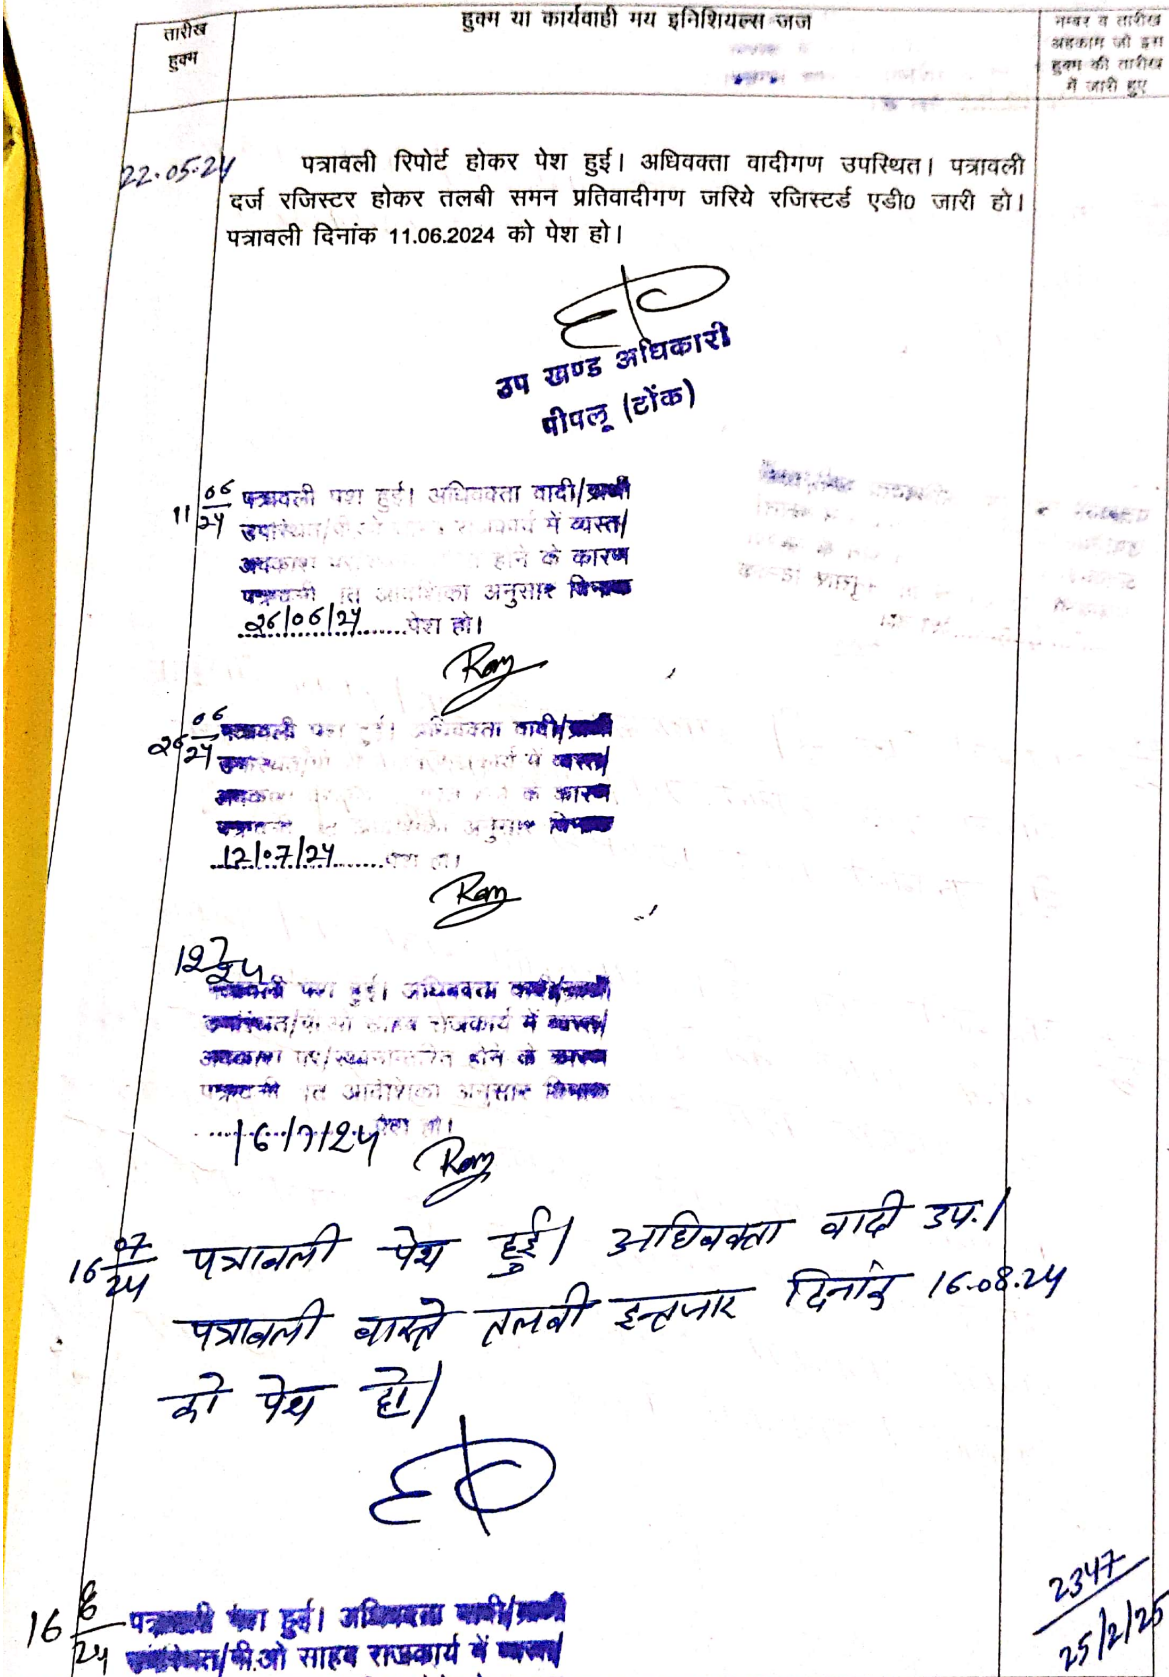 तारीख
हुक्म
हुक्म या कार्यवाही मय इनिशियल्स जज
नम्बर व तारीख
अहकाम जो इस
हुक्म की तारीख
में जारी हुए
22.05.24
पत्रावली रिपोर्ट होकर पेश हुई। अधिवक्ता वादीगण उपस्थित। पत्रावली
दर्ज रजिस्टर होकर तलबी समन प्रतिवादीगण जरिये रजिस्टर्ड एडी0 जारी हो।
पत्रावली दिनांक 11.06.2024 को पेश हो।
उप खण्ड अधिकारी
पीपलू (टोंक)
11 06/24 पत्रावली पेश हुई। अधिवक्ता वादी/प्रार्थी
उपस्थित/ में व्यस्त/
अवकाश पर/ होने के कारण
पत्रावली आदेशिका अनुसार दिनांक
26/06/24 पेश हो।
Ram
26 06/24 पत्रावली पेश हुई। अधिवक्ता वादी/प्रार्थी
में व्यस्त/
अवकाश के कारण
पत्रावली अनुसार दिनांक
12/07/24 पेश हो।
Ram
12 7/24
पत्रावली पेश हुई। अधिवक्ता वादी/प्रार्थी
उपस्थित/पी.ओ साहब राजकार्य में व्यस्त/
अवकाश पर/स्थानान्तरित होने के कारण
पत्रावली आदेशिका अनुसार दिनांक
16/7/24 पेश हो।
Ram
16 07/24 पत्रावली पेश हुई। अधिवक्ता वादी उप.।
पत्रावली वास्ते तलबी इन्तजार दिनांक 16.08.24
को पेश हो।
16 8/24 पत्रावली पेश हुई। अधिवक्ता वादी/प्रार्थी
उपस्थित/पी.ओ साहब राजकार्य में व्यस्त/
2347
25/2/25